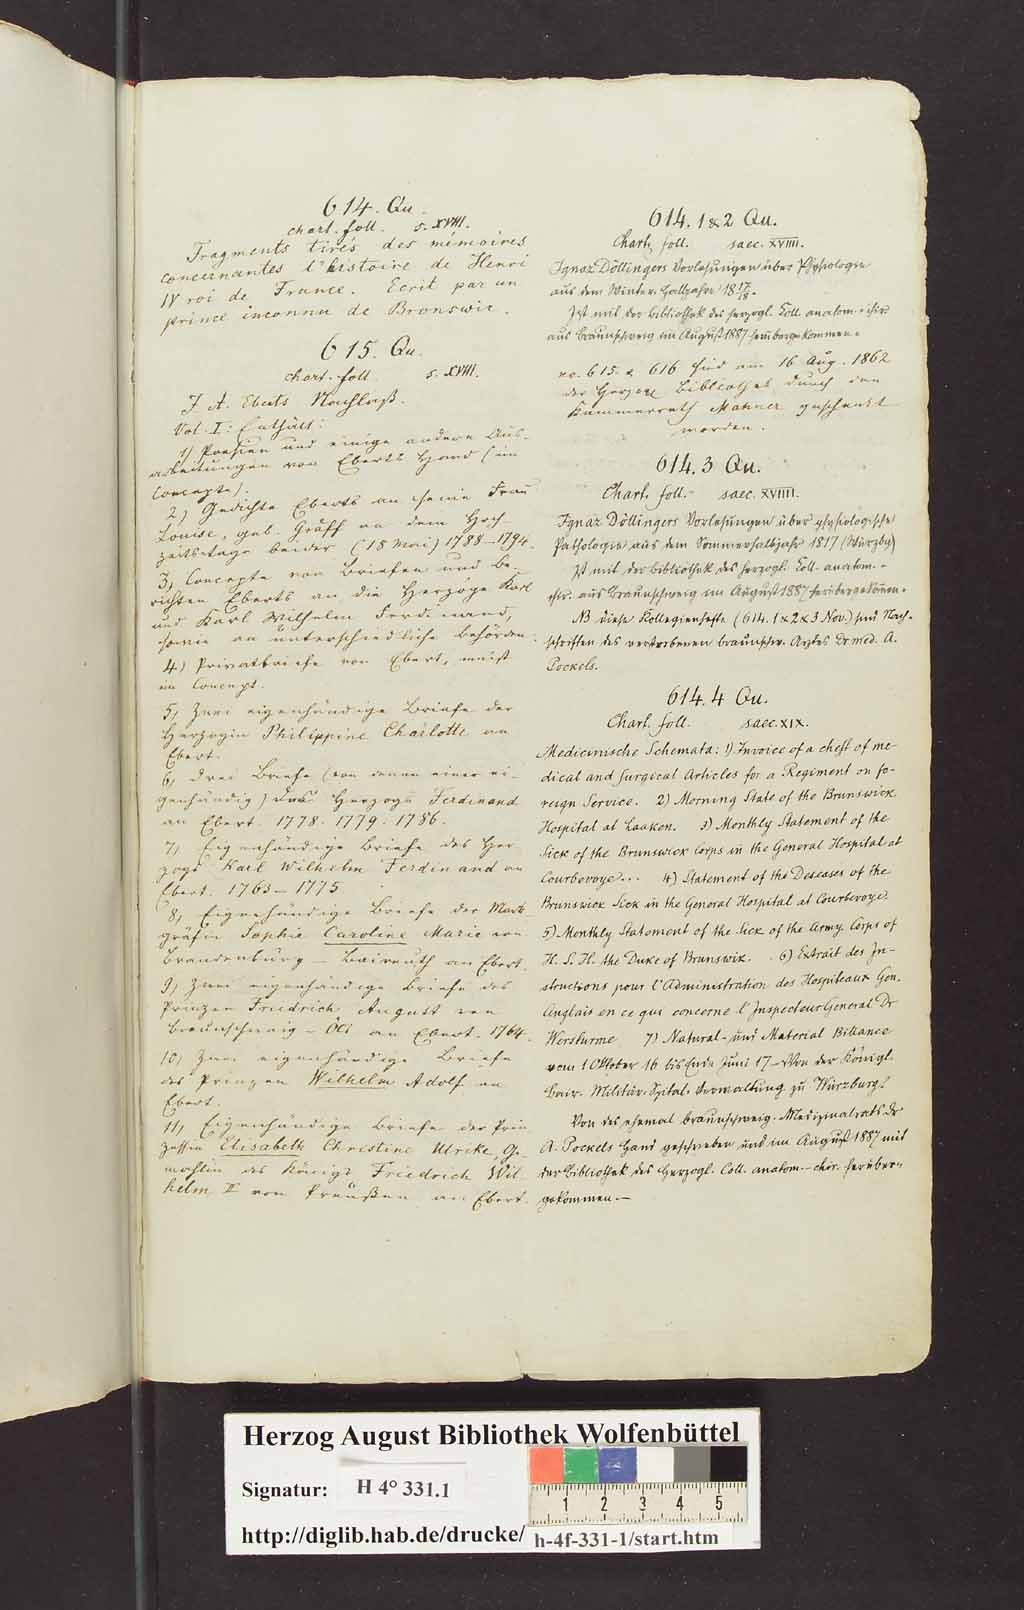 614. Qu.
chart. foll. s. XVIII.
Fragments tirés des mémoires
concernantes l'histoire de Henri
IV roi de France. Ecrit par un
prince inconnu de Bronswic.
615. Qu.
chart. foll. s. XVIII.
J. A. Eberts Nachlaß.
Vol. I: Enthält:
1) Poesien und einige andere Aus-
arbeitungen von Eberts Hand (im
Concepte).
2) Gedichte Eberts an seine Frau
Louise, geb. Gräff an dem Hoch-
zeitstage beider (18 Mai) 1788–1794.
3) Concepte von Briefen und Be-
richten Eberts an die Herzöge Karl
und Karl Wilhelm Ferdinand,
sowie an unterschiedliche Behörden.
4) Privatbriefe von Ebert, meist
im Concept.
5) Zwei eigenhändige Briefe der
Herzogin Philippine Charlotte an
Ebert.
6) Drei Briefe (von denen einer ei-
genhändig) des Herzogs Ferdinand
an Ebert. 1778. 1779. 1786.
7) Eigenhändige Briefe des Her-
zogs Karl Wilhelm Ferdinand an
Ebert. 1763–1775
8) Eigenhändige Briefe der Mark-
gräfin Sophie Caroline Marie von
Brandenburg – Baireuth an Ebert.
9) Zwei eigenhändige Briefe des
Prinzen Friedrich August von
Braunschweig – Öls an Ebert. 1764.
10) Zwei eigenhändige Briefe
des Prinzen Wilhelm Adolf an
Ebert.
11) Eigenhändige Briefe der Prin
zessin Elisabeth Christine Ulrike, Ge-
mahlin des Königs Friedrich Wil-
helm II von Preußen an Ebert.
614. 1 & 2 Qu.
Chart. foll. saec. XVIIII.
Ignaz Döllingers Vorlesungen über Physiologie
aus dem Winter-Halbjahre 18 17/18.
Ist mit der Bibliothek des herzogl. Coll. anatom.-chir.
aus Braunschweig im August 1887 herübergekommen.
no. 615 & 616 sind am 16 Aug. 1862
der Herzogl. Bibliothek durch den
Kammerrath Mahner geschenkt
worden.
614. 3 Qu.
Chart. foll. saec. XVIIII.
Ignaz Döllingers Vorlesungen über physiologische
Pathologie aus dem Sommerhalbjahr 1817 (Würzbg)
Ist mit der Bibliothek des herzogl. Coll. anatom.-
chir. aus Braunschweig im August 1887 herübergekommen.
NB diese Kollegienhefte (614. 1 & 2 & 3 Nov.) sind Nach-
schriften des verstorbenen braunschw. Arztes Dr med. A.
Pockels.
614. 4 Qu.
Chart. foll. saec. XIX.
Medicinische Schemata: 1) Invoice of a chest of me-
dical and surgical Articles for a Regiment on fo-
reign Service. 2) Morning State of the Brunswick
Hospital at Laaken. 3) Monthly Statement of the
Sick of the Brunswick Corps in the General Hospital at
Courbevoye... 4) Statement of the Deseases of the
Brunswick Sick in the General Hospital at Courbevoye.
5) Monthly Statement of the Sick of the Army Corps of
H. S. H. the Duke of Brunswik. 6) Extrait des In-
structions pour l'Administration des Hospiteaux Gen.
Anglais en ce qui concerne l'Inspecteur General Dr
7) Natural- und Material Billance
vom 1 Oktober 16 bis Ende Juni 17 – Von der Königl.
Bair. Militär-Spital-Verwaltung zu Würzburg.
Von des ehemal. braunschweig. Medizinalrats Dr
A. Pockels Hand geschrieben und im August 1887 mit
der Bibliothek des Herzogl. Coll. anatom.-chir. herüber-
gekommen.—
Herzog August Bibliothek Wolfenbüttel
Signatur: H 4° 331.1
1 2 3 4 5
http://diglib.hab.de/drucke/ h-4f-331-1/start.htm